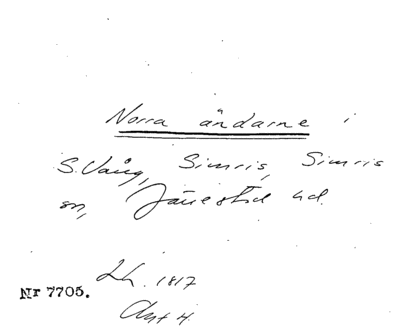 Norra ändarne i
S. Vång, Simris, Simris
sn, Järrestad hd.
Lh. 1817
Nr 7705.
Akt 4.